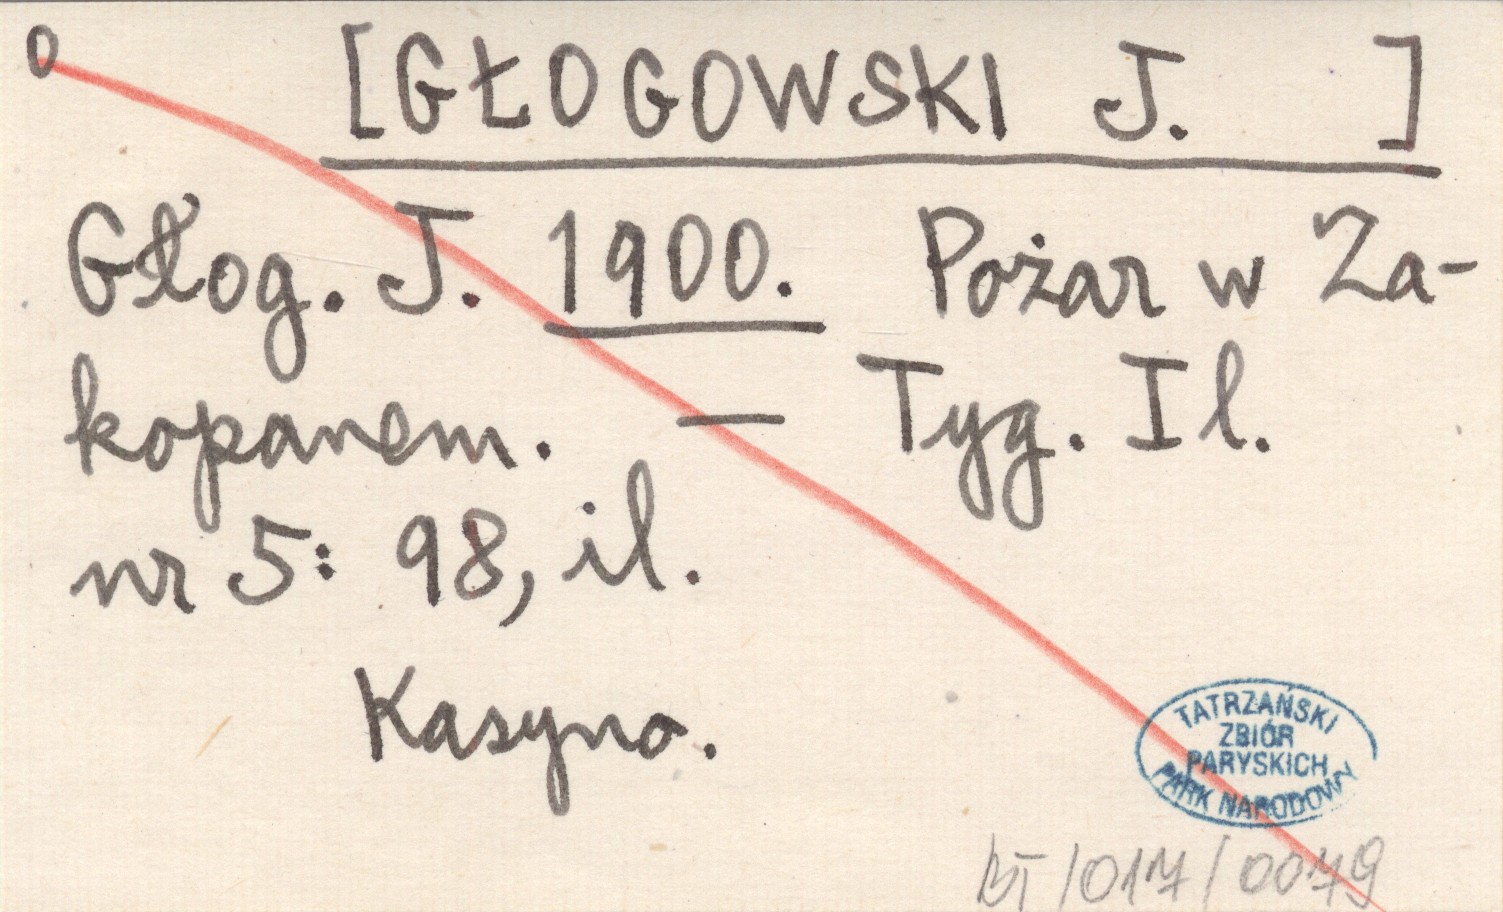 0 [GŁOGOWSKI J. ]
Głog. J. 1900. Pożar w Za-
kopanem. — Tyg. Il.
nr 5: 98, il.
Kasyno.
TATRZAŃSKI
ZBIÓR
PARYSKICH
PARK NARODOWY
BT/017/0079